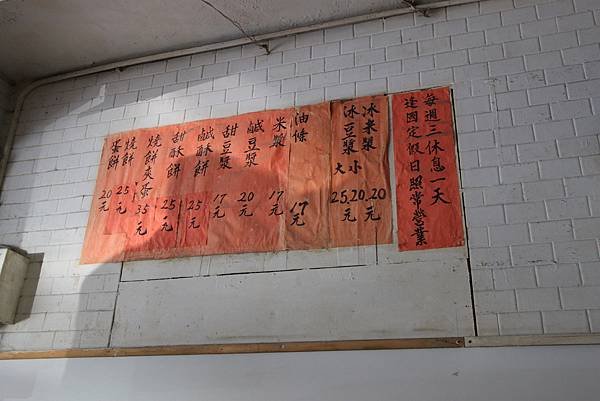 每週三休息一天
逢國定假日照常營業
冰米漿 20元
冰豆漿 大小 25.20元
油條 17元
米漿 17元
鹹豆漿 20元
甜豆漿 17元
鹹酥餅 25元
甜酥餅 25元
燒餅夾蛋 35元
燒餅 25元
蛋餅 20元